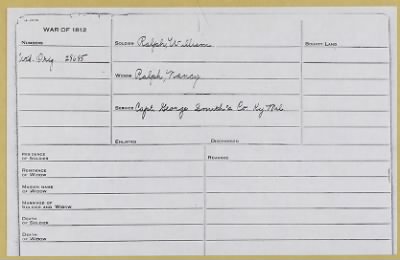 WAR OF 1812
NUMBERS
Wid. Orig. 28685
SOLDIER Ralph, William
WIDOW Ralph, Nancy
SERVICE Capt. George Smith's Co. Ky Mil
ENLISTED DISCHARGED
BOUNTY LAND
RESIDENCE
OF SOLDIER
RESIDENCE
OF WIDOW
MAIDEN NAME
OF WIDOW
MARRIAGE OF
SOLDIER AND WIDOW
DEATH
OF SOLDIER
DEATH
OF WIDOW
REMARKS